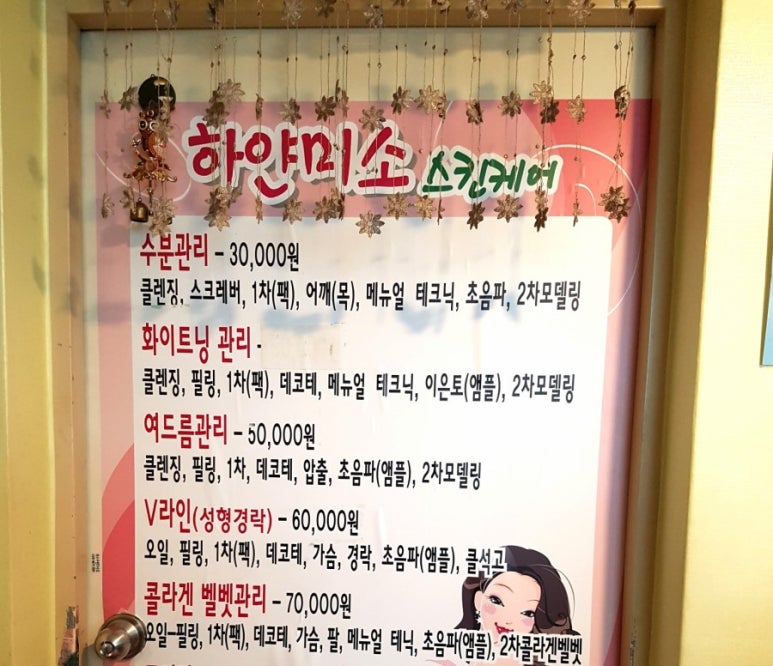 하얀미소 스킨케어
수분관리 - 30,000원
클렌징, 스크레버, 1차(팩), 어깨(목), 메뉴얼 테크닉, 초음파, 2차모델링
화이트닝 관리 -
클렌징, 필링, 1차(팩), 데코테, 메뉴얼 테크닉, 이은토(앰플), 2차모델링
여드름관리 - 50,000원
클렌징, 필링, 1차, 데코테, 압출, 초음파(앰플), 2차모델링
V라인(성형경락) - 60,000원
오일, 필링, 1차(팩), 데코테, 가슴, 경락, 초음파(앰플), 클석고
콜라겐 벨벳관리 - 70,000원
오일-필링, 1차(팩), 데코테, 가슴, 팔, 메뉴얼 테닉, 초음파(앰플), 2차콜라겐벨벳